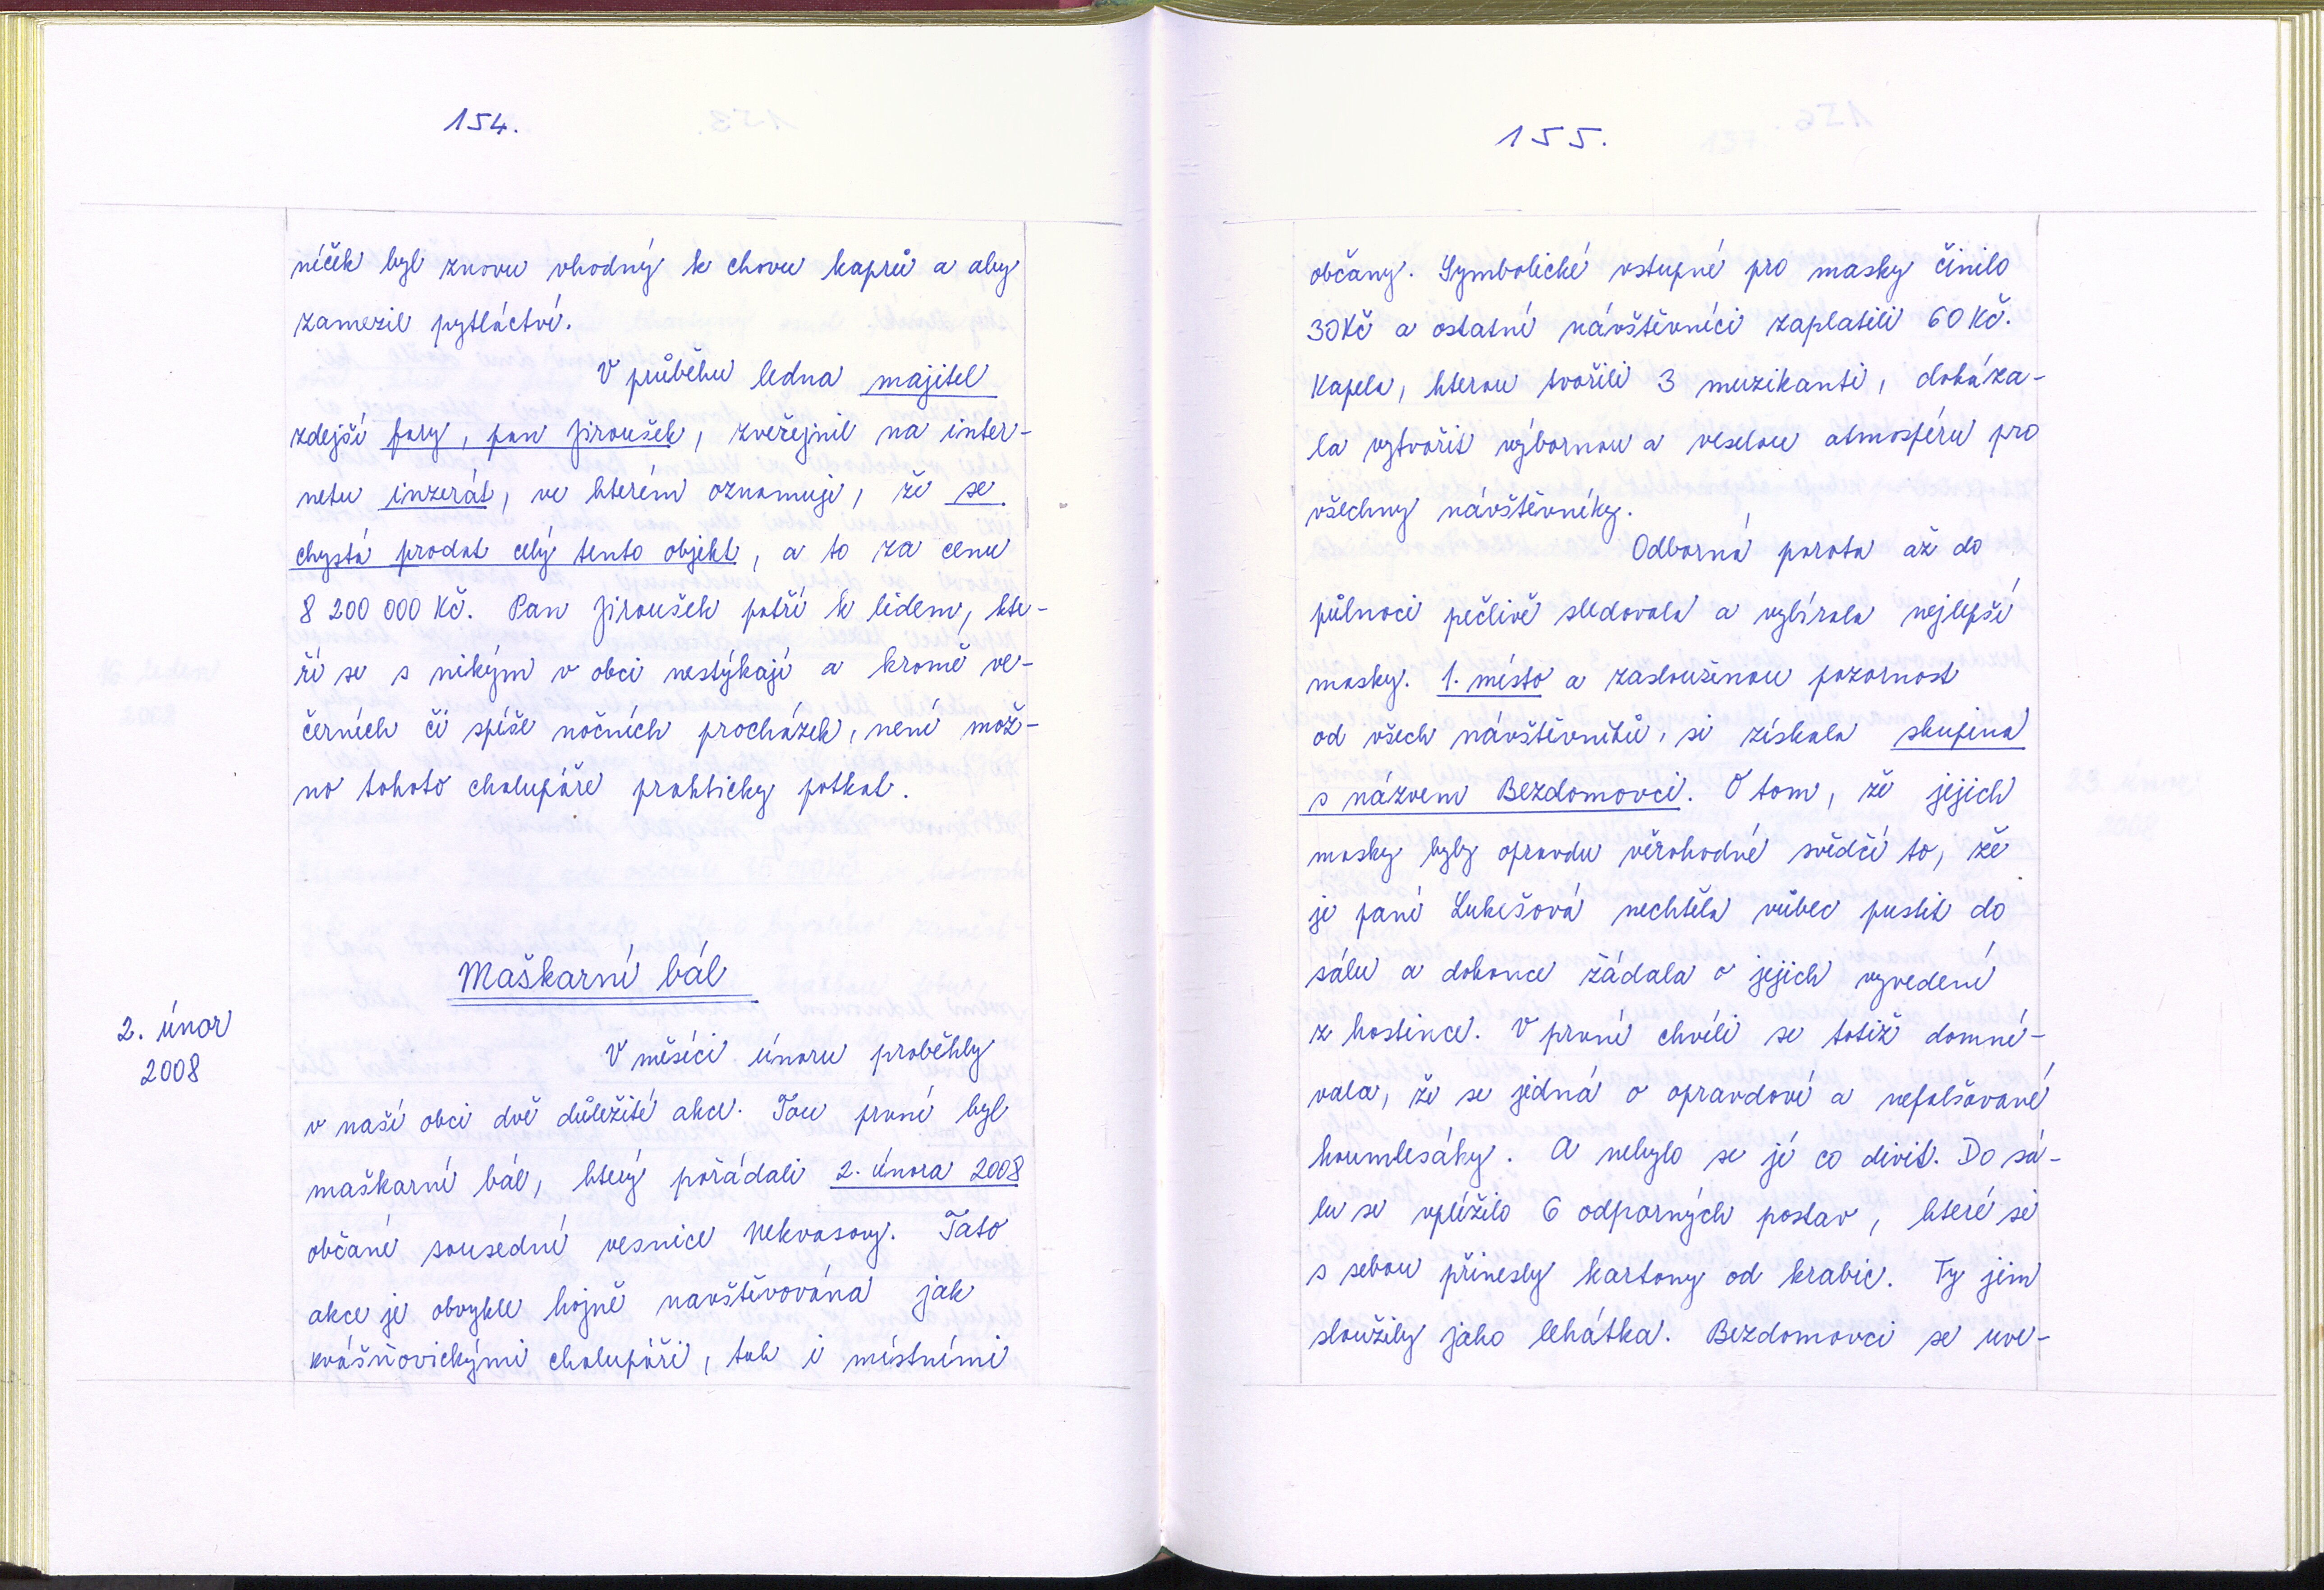 154.
níček byl znovu vhodný k chovu kaprů a aby
zamezil pytláctví.
V průběhu ledna majitel
zdejší fary, pan Jiroušek, zveřejnil na inter-
netu inzerát, ve kterém oznamuje, že se
chystá prodat celý tento objekt, a to za cenu
8 200 000 Kč. Pan Jiroušek patří k lidem, kte-
ří se s nikým v obci nestýkají a kromě ve-
černích či spíše nočních procházek, není mož-
no tohoto chalupáře prakticky potkat.
Maškarní bál
2. únor
2008
V měsíci únoru proběhly
v naší obci dvě důležité akce. Tou první byl
maškarní bál, který pořádali 2. února 2008
občané sousední vesnice Nekvasovy. Tato
akce je obvykle hojně navštěvována jak
kvášňovickými chalupáři, tak i místními
155.
občany. Symbolické vstupné pro masky činilo
30 Kč a ostatní návštěvníci zaplatili 60 Kč.
Kapela, kterou tvořili 3 muzikanti, dokáza-
la vytvořit výbornou a veselou atmosféru pro
všechny návštěvníky.
Odborná porota až do
půlnoci pečlivě sledovala a vybírala nejlepší
masky. 1. místo a zaslouženou pozornost
od všech návštěvníků, si získala skupina
s názvem Bezdomovci. O tom, že jejich
masky byly opravdu věrohodné svědčí to, že
je paní Lukešová nechtěla vůbec pustit do
sálu a dokonce žádala o jejich vyvedení
z hostince. V první chvíli se totiž domní-
vala, že se jedná o opravdové a nefalšované
houmlesáky. A nebylo se jí co divit. Do sá-
lu se vplížilo 6 odporných postav, které si
s sebou přinesly kartony od krabic. Ty jim
sloužily jako lehátka. Bezdomovci se uve-